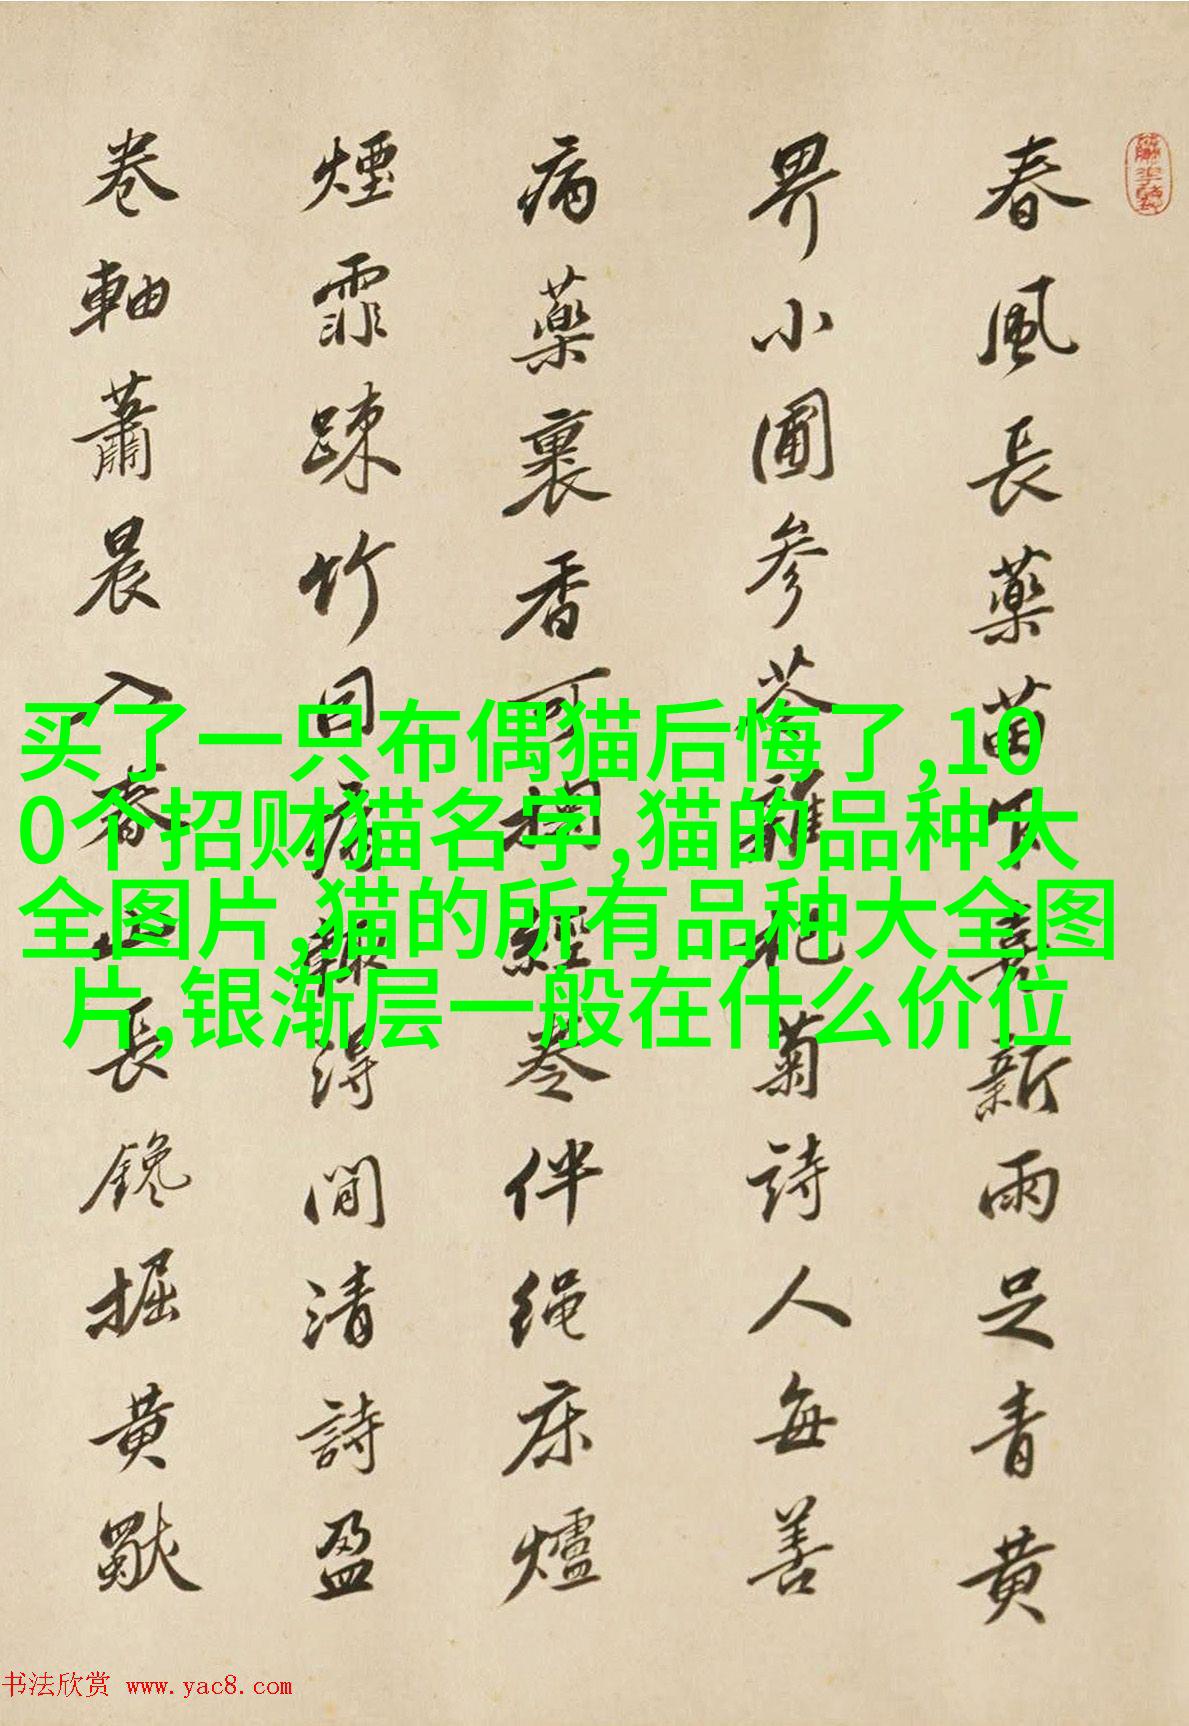 春風長藥苗
新雨足青黃
畀小圃參苓雜
菊詩人每善
病藥裹香可
經卷伴绳床爐
煙霏踈竹
得閒清詩盈
卷軸蕭晨入
長鑱掘黄
买了一只布偶猫后悔了,10
0个招财猫名字,猫的品种大
全图片,猫的所有品种大全图
片,银渐层一般在什么价位
书法欣赏 www.yac8.com